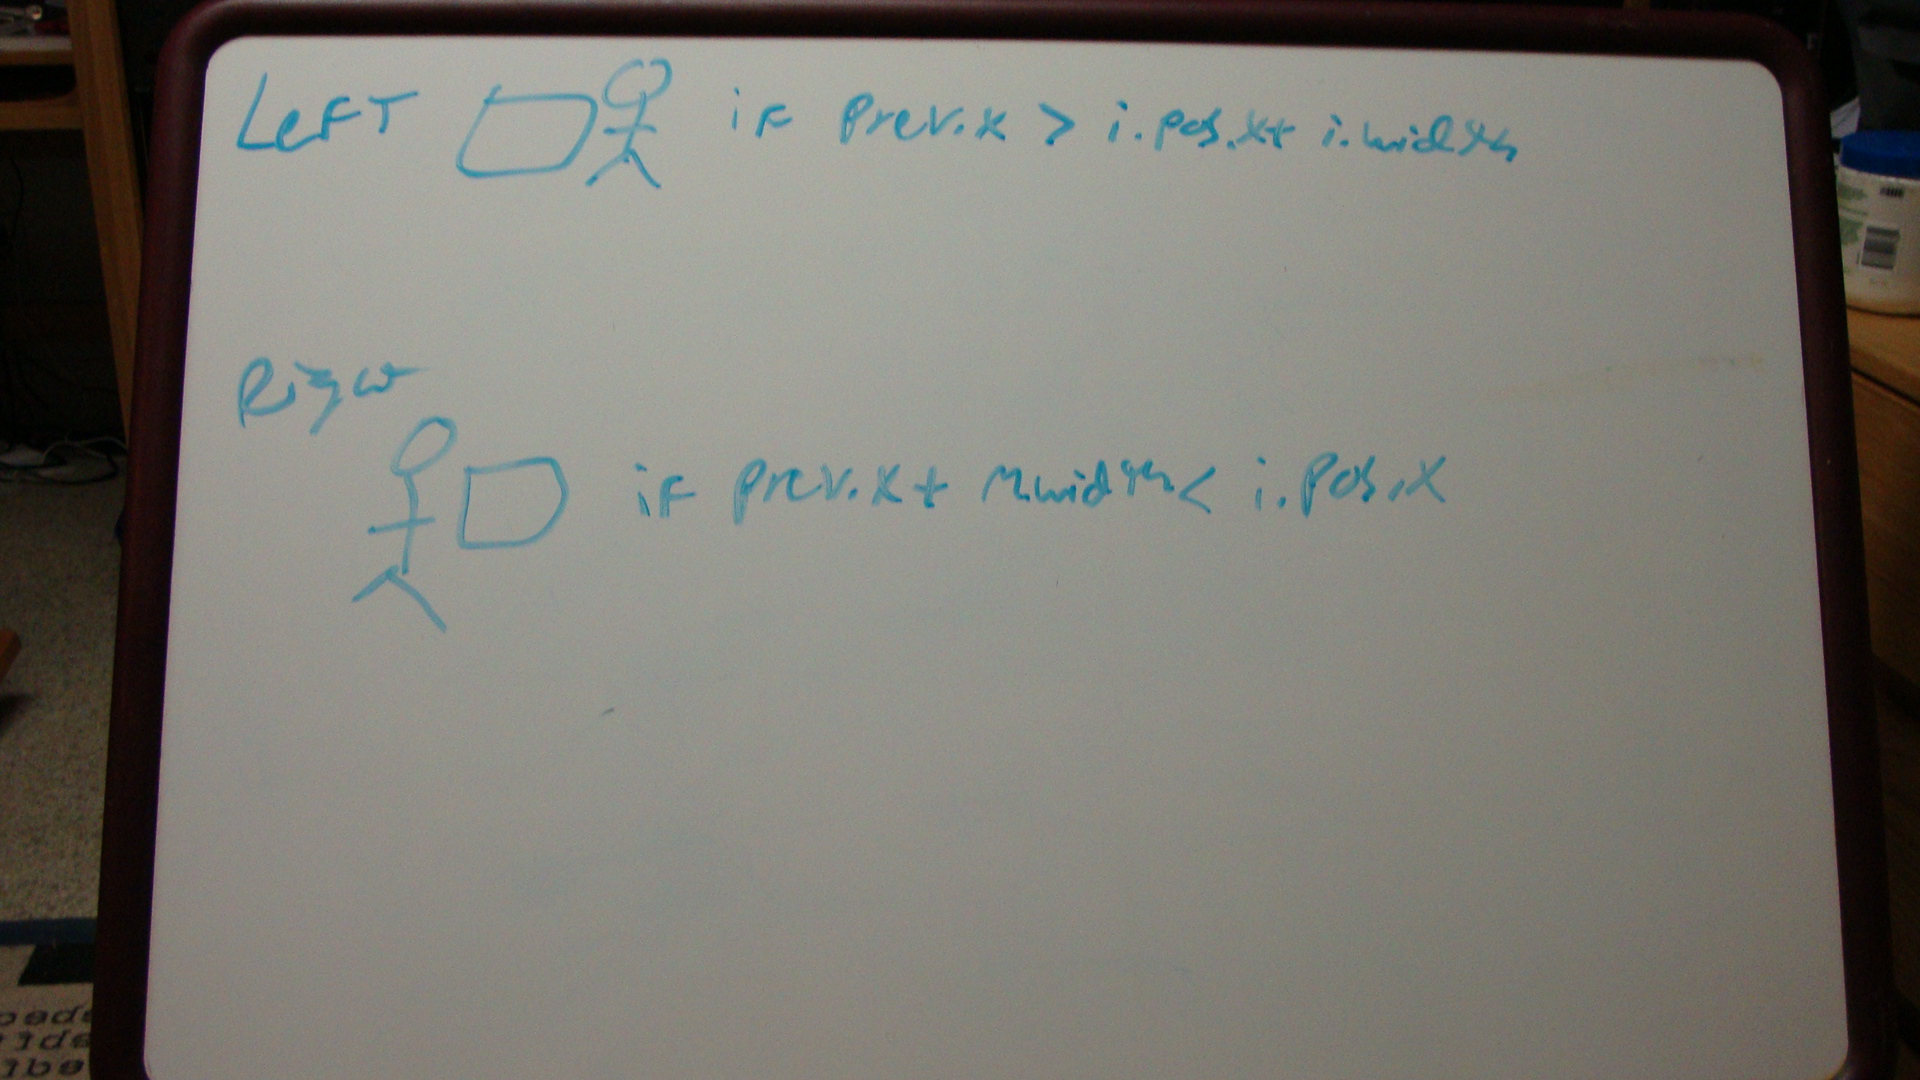 Left if prev.x > i.pos.x+ i.width
Right
if prev.x + m.width < i.pos.x